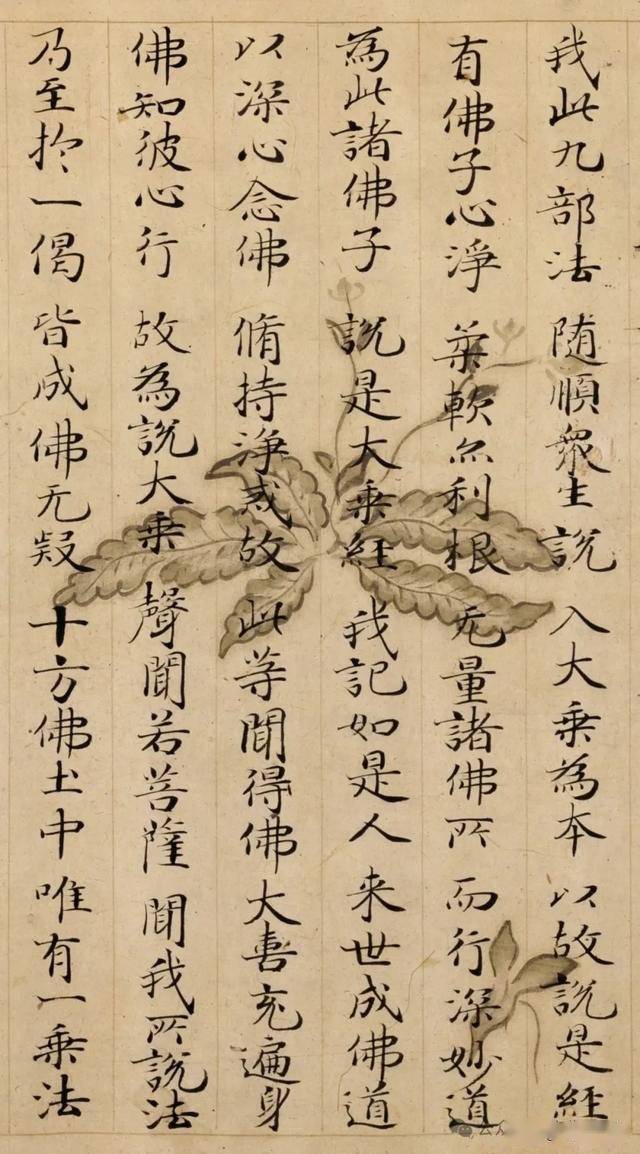 我此九部法 随順衆生說 入大乘為本 以故說是經
有佛子心淨 柔軟亦利根 无量諸佛所 而行深妙道
為此諸佛子 說是大乘經 我記如是人 来世成佛道
以深心念佛 脩持淨戒故 此等聞得佛 大喜充遍身
佛知彼心行 故為說大乘 聲聞若菩薩 聞我所說法
乃至於一偈 皆成佛无疑 十方佛土中 唯有一乘法